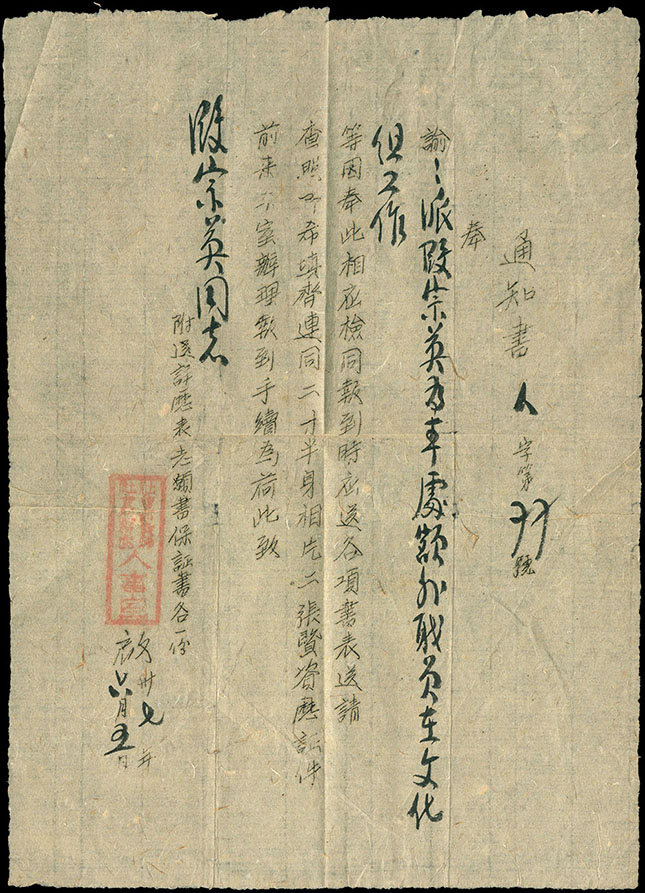 通知書 人字第 號
奉
諭：派段宗英為本處額外職員在文化
組工作
等因奉此相应檢同報到時应送各項書表送請
查照 希填齊連同二寸半身相片二張暨資歷証件
前来 室辦理報到手續為荷此致
段宗英同志
附送詳歷表志願書保証書各一份
人事室
啟 卅七年
六月五日